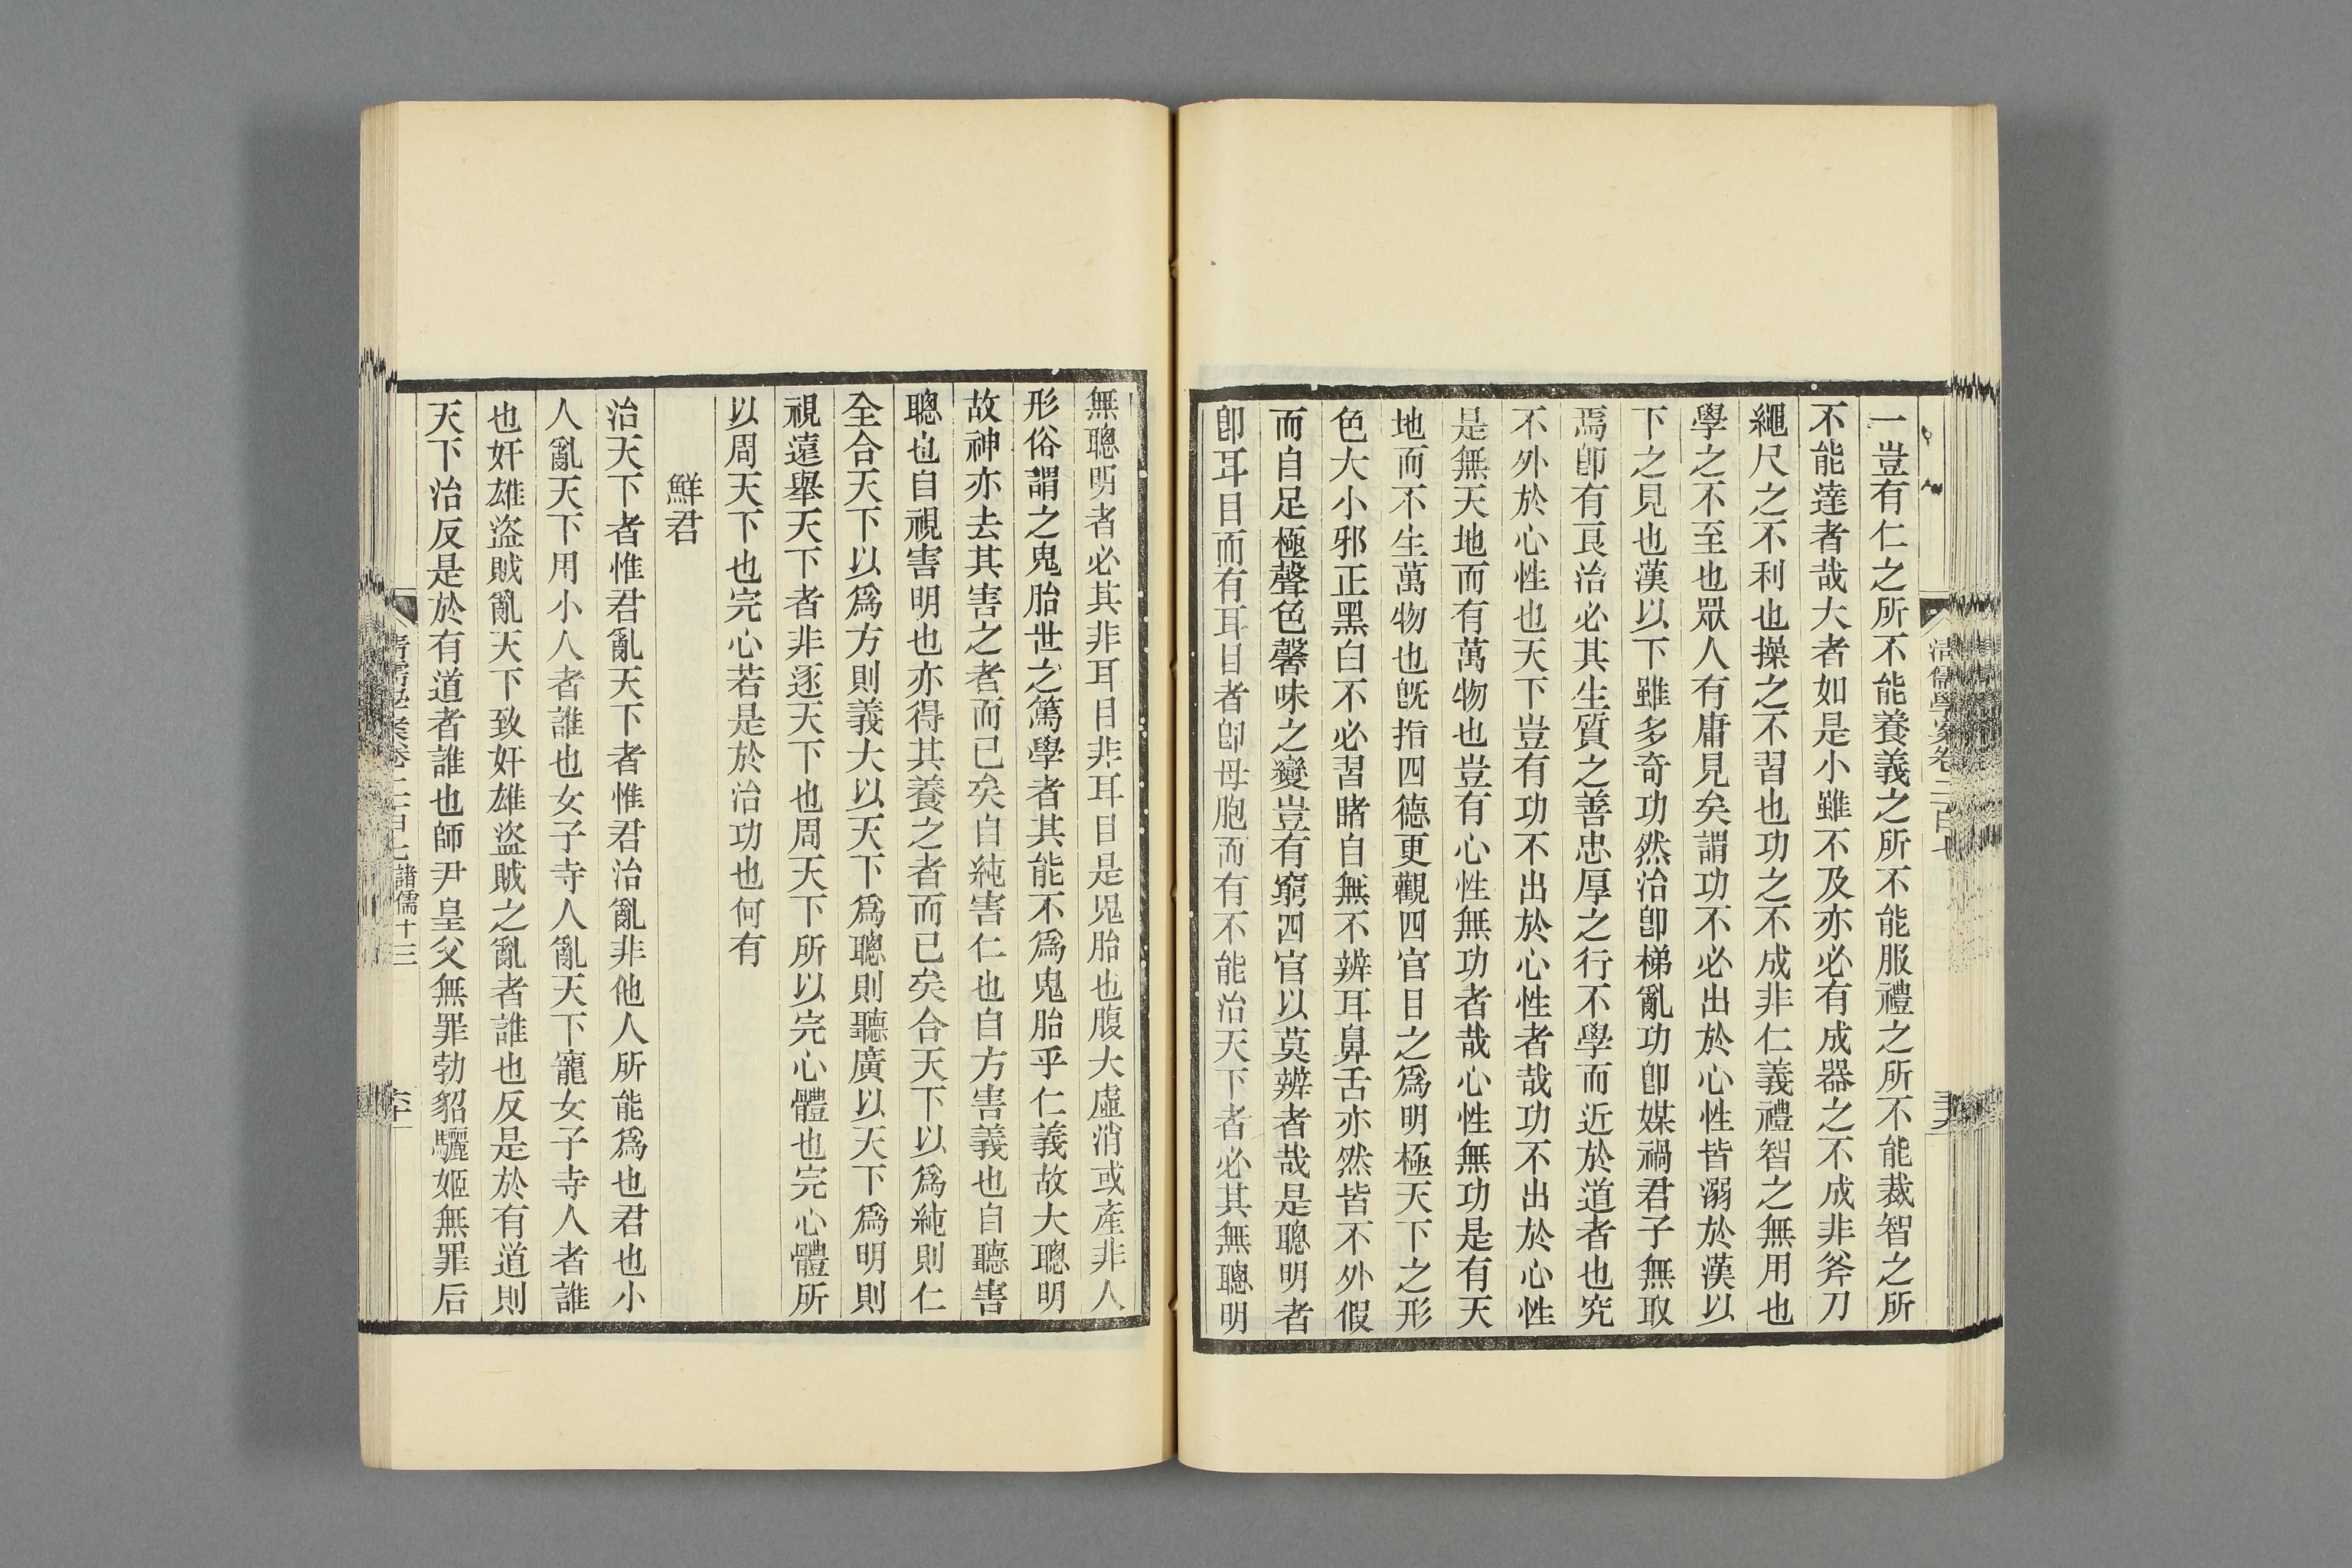 一豈有仁之所不能養義之所不能服禮之所不能裁智之所
不能達者哉大者如是小雖不及亦必有成器之不成非斧刀
繩尺之不利也操之不習也功之不成非仁義禮智之無用也
學之不至也眾人有庸見矣謂功不必出於心性皆溺於漢以
下之見也漢以下雖多奇功然治卽梯亂功卽媒禍君子無取
焉卽有良治必其生質之善忠厚之行不學而近於道者也究
不外於心性也天下豈有功不出於心性者哉功不出於心性
是無天地而有萬物也豈有心性無功者哉心性無功是有天
地而不生萬物也旣指四德更觀四官目之爲明極天下之形
色大小邪正黑白不必習睹自無不辨耳鼻舌亦然皆不外假
而自足極聲色馨味之變豈有窮四官以莫辨者哉是聰明者
卽耳目而有耳目者卽母胞而有不能治天下者必其無聰明
無聰明者必其非耳目非耳目是鬼胎也腹大虛消或產非人
形俗謂之鬼胎世之篤學者其能不爲鬼胎乎仁義故大聰明
故神亦去其害之者而已矣自純害仁也自方害義也自聽害
聰也自視害明也亦得其養之者而已矣合天下以爲純則仁
全合天下以爲方則義大以天下爲聰則聽廣以天下爲明則
視遠舉天下者非逐天下也周天下所以完心體也完心體所
以周天下也完心若是於治功也何有
鮮君
治天下者惟君亂天下者惟君治亂非他人所能爲也君也小
人亂天下用小人者誰也女子寺人亂天下寵女子寺人者誰
也奸雄盜賊亂天下致奸雄盜賊之亂者誰也反是於有道則
天下治反是於有道者誰也師尹皇父無罪勃貂驪姬無罪后